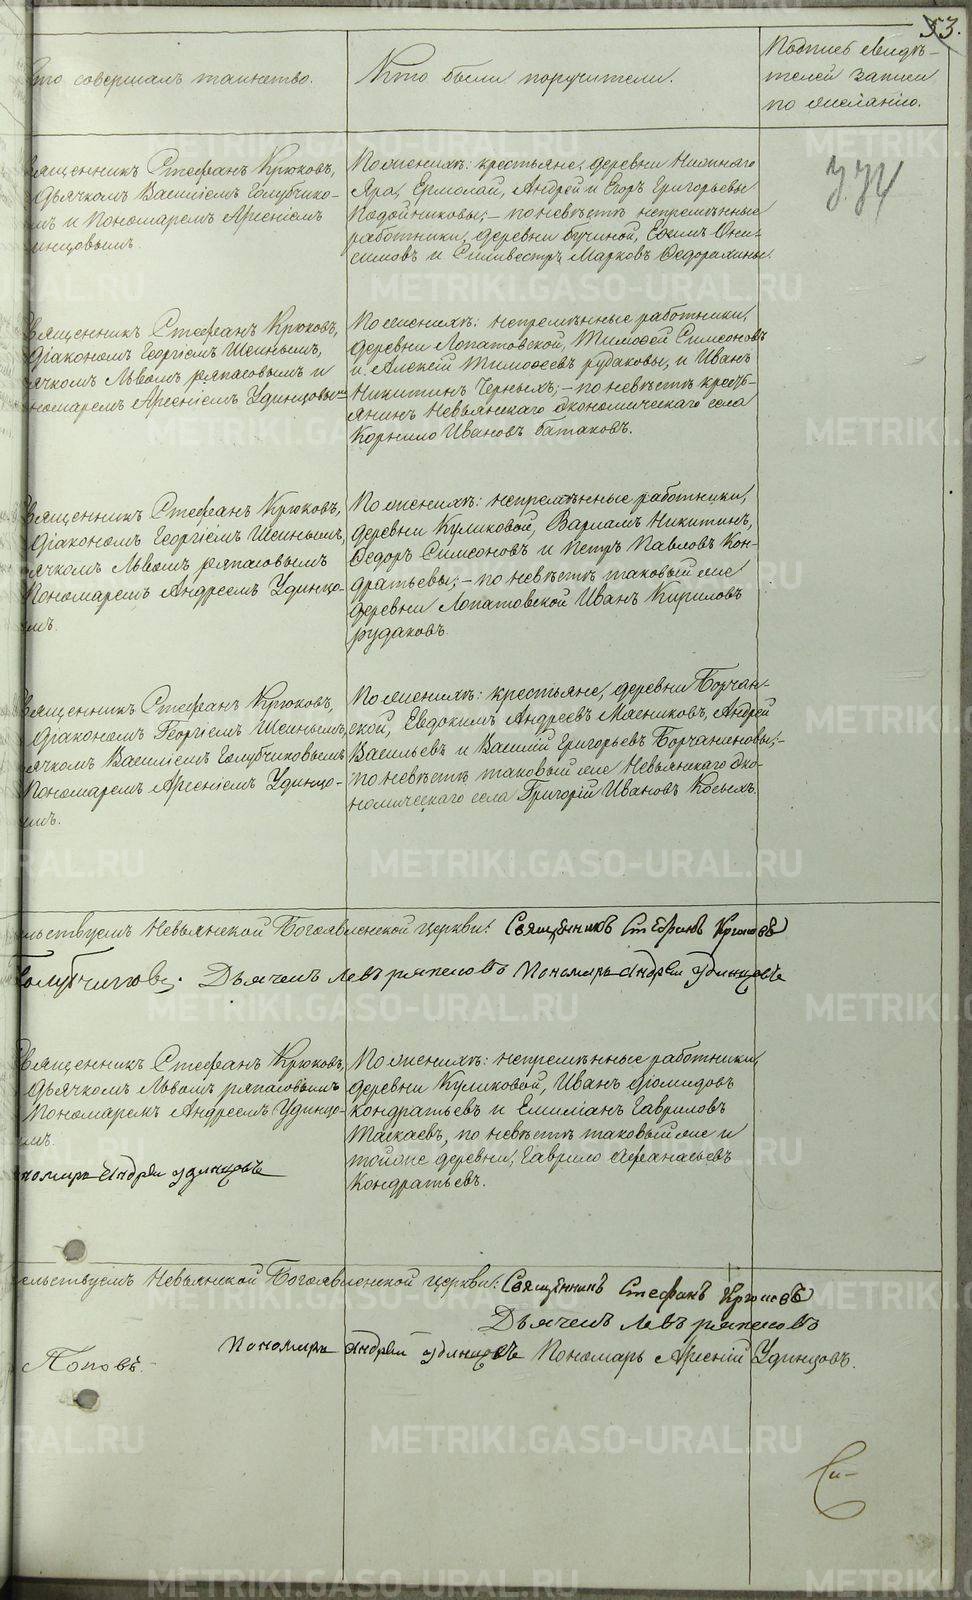 53.
Кто совершалъ таинство.
Кто были поручители.
Подпись свидѣ-
телей записи
по желанію.
Священникъ Стефанъ Крюковъ,
Дьячкомъ Василіемъ Голубчико-
мъ и Пономаремъ Арсеніемъ
инцовымъ.
По женихѣ: крестьяне, деревни Нижняго
Яра, Ермолай, Андрей и Егоръ Григорьевы
Подойниковы; – по невѣстѣ непремѣнные
работники, деревни Бучиной, Ефимъ Они-
симовъ и Силивестръ Марковъ Федорахины.
Священникъ Стефанъ Крюковъ,
Діакономъ Георгіемъ Шеинымъ,
ячкомъ Львомъ Ряпасовымъ и
номаремъ Арсеніемъ Удинцовы-
По женихѣ: непремѣнные работники,
деревни Лопатовской, Тимофей Симеоновъ
и Алексѣй Тимофеевъ Рудаковы, и Иванъ
Никитинъ Черныхъ; – по невѣстѣ кресть-
янинъ Невьянскаго экономическаго села
Корнило Ивановъ Батаковъ.
Священникъ Стефанъ Крюковъ,
Діакономъ Георгіемъ Шеинымъ,
ячкомъ Львомъ Ряпасовымъ
Пономаремъ Андреемъ Удинцо-
мъ.
По женихѣ: непремѣнные работники,
деревни Куликовой, Варламъ Никитинъ,
Федоръ Симеоновъ и Петръ Павловъ Кон-
дратьевы; – по невѣстѣ таковый же
деревни Лопатовской Иванъ Кириловъ
Рудаковъ.
Священникъ Стефанъ Крюковъ,
Діакономъ Георгіемъ Шеинымъ,
ячкомъ Василіемъ Голубчиковымъ
Пономаремъ Арсеніемъ Удинцо-
мъ.
По женихѣ: крестьяне, деревни Борчан-
ской, Евдокимъ Андреевъ Мясниковъ, Андрей
Васильевъ и Василій Григорьевъ Борчаниновы; –
по невѣстѣ таковый же Невьянскаго эко-
номическаго села Григорій Ивановъ Косыхъ.
льствуемъ Невьянской Богоявленской церкви: Священникъ Стефанъ Крюковъ
Голубчиковъ. Дьячекъ Левъ Ряпасовъ Пономарь Андрей Удинцовъ
Священникъ Стефанъ Крюковъ,
Дьячкомъ Львомъ Ряпасовымъ
Пономаремъ Андреемъ Удинцо-
мъ.
номарь Андрей Удинцовъ
По женихѣ: непремѣнные работники,
деревни Куликовой, Иванъ Діомидовъ
Кондратьевъ и Емиліанъ Гавриловъ
Таскаевъ, по невѣстѣ таковый же и
тойже деревни, Гаврило Афанасьевъ
Кондратьевъ.
ельствуемъ Невьянской Богоявленской церкви: Священникъ Стефанъ Крюковъ
Дьячекъ Левъ Ряпасовъ
Поповъ – Пономарь Андрей Удинцовъ Пономарь Арсеній Удинцовъ.
METRIKI.GASO-URAL.RU